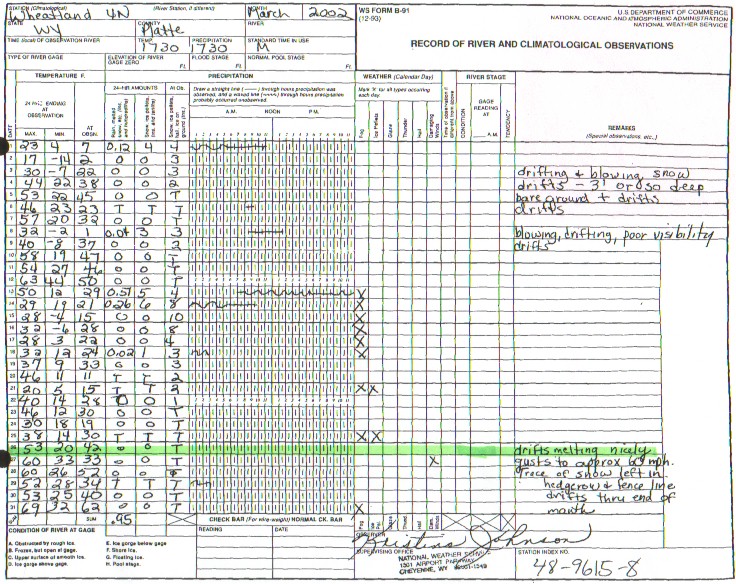 STATION (Climatological)
Wheatland 4N
(River Station, if different)
MONTH
March 2002
WS FORM B-91
(12-93)
U.S. DEPARTMENT OF COMMERCE
NATIONAL OCEANIC AND ATMOSPHERIC ADMINISTRATION
NATIONAL WEATHER SERVICE
STATE
WY
COUNTY
Platte
RIVER
TIME (local) OF OBSERVATION RIVER
TEMP.
1730
PRECIPITATION
1730
STANDARD TIME IN USE
M
RECORD OF RIVER AND CLIMATOLOGICAL OBSERVATIONS
TYPE OF RIVER GAGE
ELEVATION OF RIVER GAGE ZERO
Ft.
FLOOD STAGE
Ft.
NORMAL POOL STAGE
Ft.
TEMPERATURE F.
PRECIPITATION
WEATHER (Calendar Day)
RIVER STAGE
24 HRS ENDING AT OBSERVATION
24-HR AMOUNTS
At Ob.
Draw a straight line (——) through hours precipitation was observed, and a waved line (~~~) through hours precipitation probably occurred unobserved
Mark 'X' for all types occurring each day.
GAGE READING AT
A.M.
CONDITION
TENDENCY
REMARKS
(Special observations, etc.)
DATE
MAX.
MIN
AT OBSN.
A.M.
NOON
P.M.
Fog
Ice Pellets
Glaze
Thunder
Hail
Damaging Winds
1 23 4 7 0.12 4 4
2 17 -14 2 0 0 3
3 30 -7 22 0 0 3 drifting & blowing, snow
4 44 22 38 0 0 2 drifts - 3' or so deep
5 53 22 45 0 0 T bare ground + drifts
6 46 23 23 T T T drifts
7 57 20 32 0 0 T
8 32 -2 1 0.04 3 3 blowing, drifting, poor visibility
9 40 -8 37 0 0 2 drifts
10 58 19 47 0 0 T
11 54 27 46 0 0 T
12 63 44 50 0 0 T
13 50 12 29 0.51 5 4 X
14 29 19 21 0.26 6 8 X
15 28 -4 15 0 0 10 X
16 32 -6 28 0 0 8 X
17 28 3 22 0 0 4 X
18 32 12 24 0.02 1 3 X
19 37 9 33 0 0 3
20 46 11 11 T T 2
21 20 5 15 T T 2 X X
22 40 14 28 0 0 1
23 46 12 30 0 0 T
24 30 18 19 0 0 T
25 38 14 30 T T T X X
26 53 20 42 0 drifts melting nicely
27 60 33 33 0 0 T X gusts to approx 60 mph.
28 60 26 52 0 0 T Trace of snow left in
29 52 28 34 T T T hedgerow & fence line
30 53 25 40 0 0 T drifts thru end of
31 69 32 62 0 0 T month
SUM .95
CHECK BAR (For wire-weight) NORMAL CK. BAR
CONDITION OF RIVER AT GAGE
READING
DATE
A. Obstructed by rough ice.
B. Frozen, but open at gage.
C. Upper surface of smooth ice.
D. Ice gorge above gage.
E. Ice gorge below gage
F. Shore ice.
G. Floating ice.
H. Pool stage.
OBSERVER
Kristina Johnson
SUPERVISING OFFICE
NATIONAL WEATHER SERVICE
1301 AIRPORT PARKWAY
CHEYENNE, WY 82001-1549
STATION INDEX NO.
48-9615-8